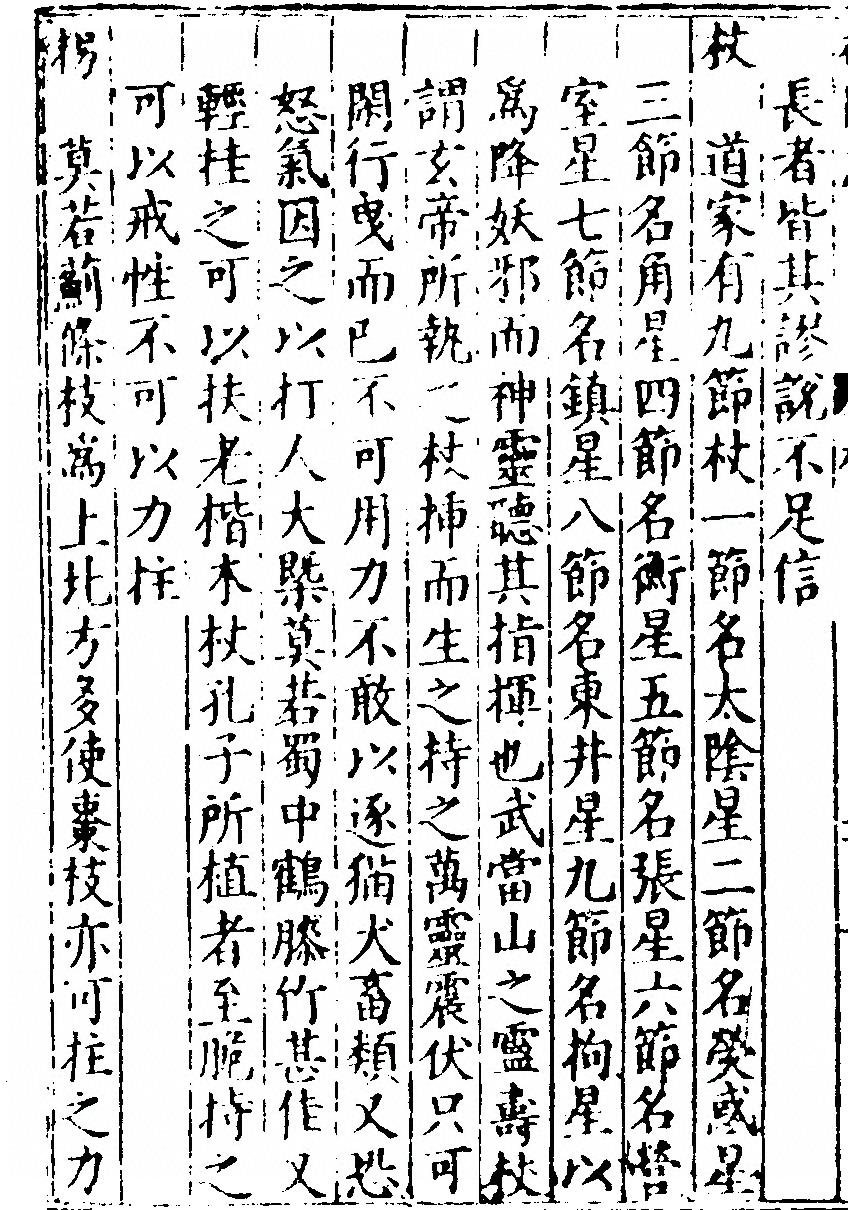 長者皆其謬說不足信
杖
道家有九節杖一節名太陰星二節名熒惑星
三節名角星四節名衡星五節名張星六節名營
室星七節名鎮星八節名東井星九節名拘星以
爲降妖邪而神靈聽其指揮也武當山之靈壽杖
謂玄帝所執之杖揷而生之持之萬靈震伏只可
閑行曵而已不可用力不敢以逐猫犬畜類又恐
怒氣因之以打人大槩莫若蜀中鶴膝竹甚佳又
輕拄之可以扶老楷木杖孔子所植者至脆持之
可以戒性不可以力拄
拐
莫若薊條枝爲上北方多使棗枝亦可拄之力